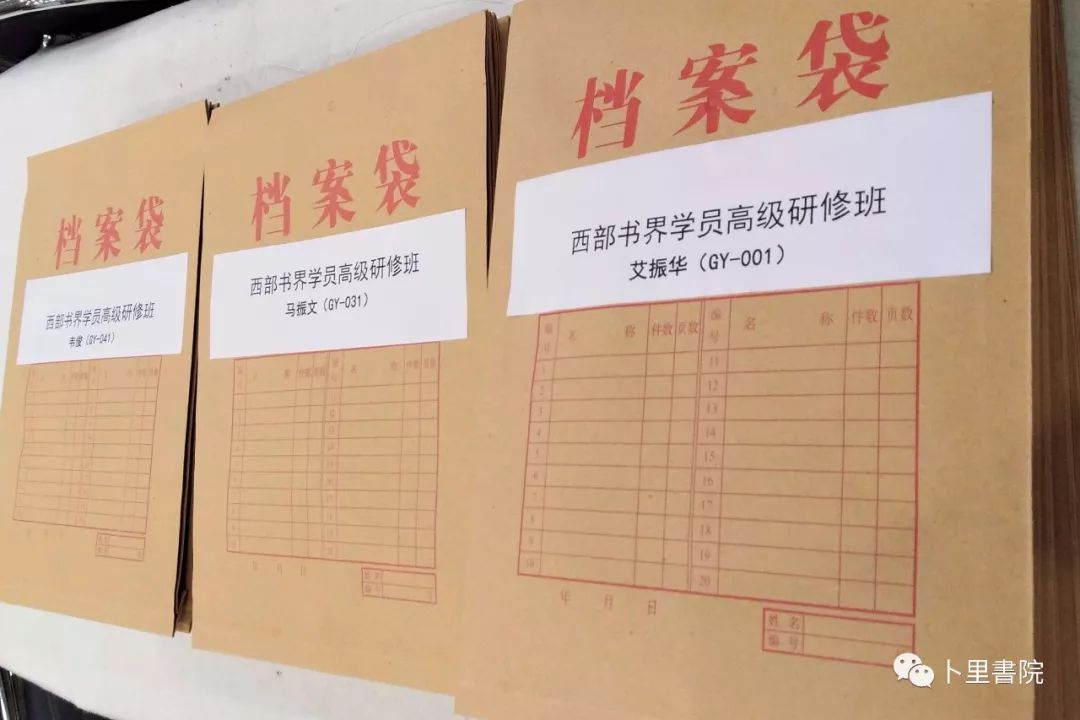 档案袋
西部书界学员高级研修班
韦俊（GY-041）
档案袋
西部书界学员高级研修班
马振文（GY-031）
编号 名称 件数 页数 编号 名称 件数 页数
年 月 日
姓名
编号
档案袋
西部书界学员高级研修班
艾振华（GY-001）
编号 名称 件数 页数 编号 名称 件数 页数
1 11
2 12
3 13
4 14
5 15
6 16
7 17
8 18
9 19
10 20
年 月 日
姓名
编号
卜里書院